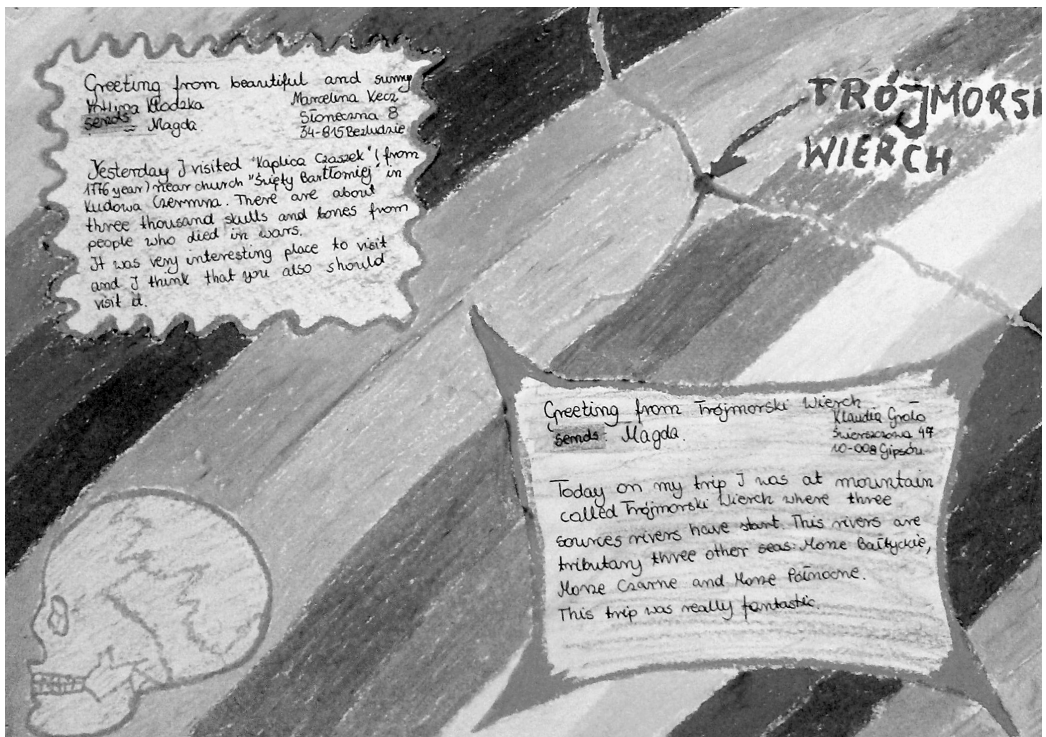 Greeting from beautiful and sunny
Kotlina Kłodzka
sends Magda
Marcelina Kecz
Słoneczna 8
34-815 Bezludzie
Yesterday I visited "Kaplica Czaszek" (from
1776 year) near church "Święty Bartłomiej" in
Kudowa Czermna. There are about
three thousand skulls and bones from
people who died in wars.
It was very interesting place to visit
and I think that you also should
visit it.
TRÓJMORSK
WIERCH
Greeting from Trójmorski Wierch
sends: Magda.
Klaudia Grolo
Świerszczowa 47
10-008 Gipsów
Today on my trip I was at mountain
called Trójmorski Wierch where three
sources rivers have start. This rivers are
tributary three other seas: Morze Bałtyckie,
Morze Czarne and Morze Północne.
This trip was really fantastic.